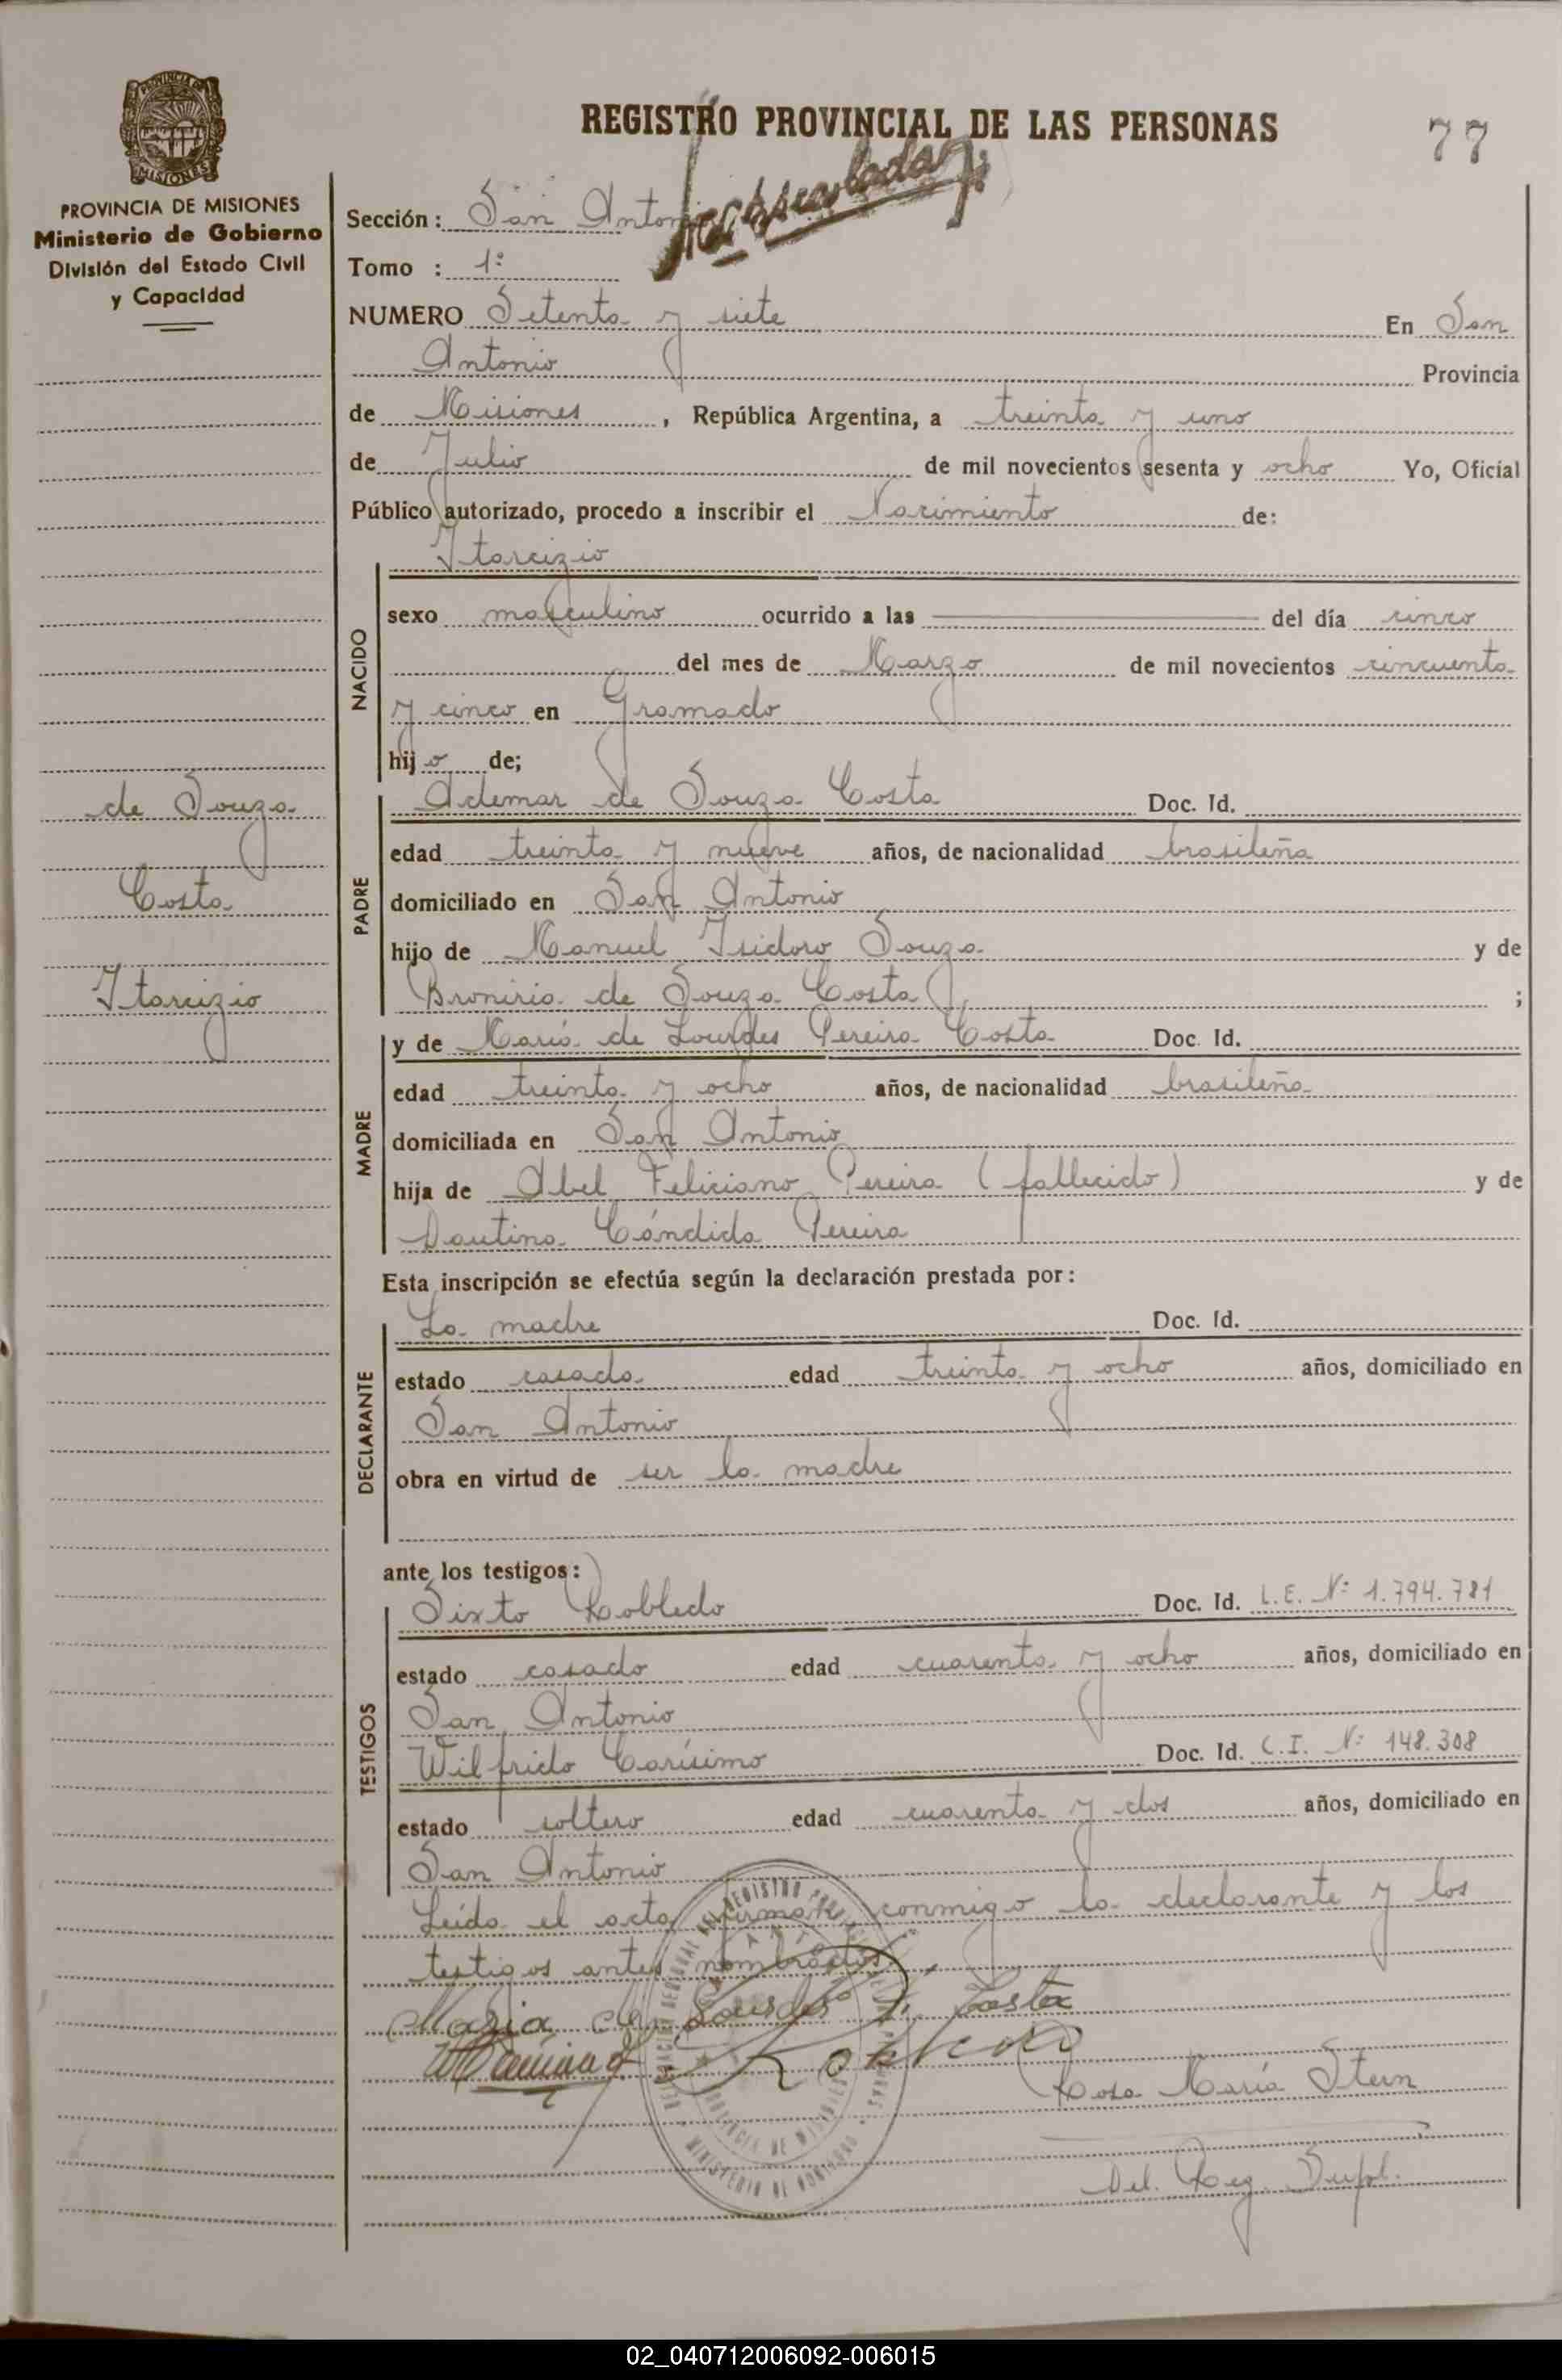 REGISTRO PROVINCIAL DE LAS PERSONAS
77
PROVINCIA DE MISIONES
Ministerio de Gobierno
División del Estado Civil
y Capacidad
Sección: San Antonio
Tomo : 1º
NUMERO Setenta y siete En San
Antonio Provincia
de Misiones, República Argentina, a treinta y uno
de Julio de mil novecientos sesenta y ocho Yo, Oficial
Público autorizado, procedo a inscribir el Nacimiento de:
Itarcizio
NACIDO
sexo masculino ocurrido a las del día cinco
del mes de Marzo de mil novecientos cincuenta
y cinco en Gramado
hijo de;
de Souza
Costa
Itarcizio
PADRE
Ademar de Souza Costa Doc. Id.
edad treinta y nueve años, de nacionalidad brasileña
domiciliado en San Antonio
hijo de Manuel Isidoro Souza y de
de Souza Costa ;
MADRE
y de María de Lourdes Pereira Costa Doc. Id.
edad treinta y ocho años, de nacionalidad brasileña
domiciliada en San Antonio
hija de Abel Feliciano Pereira (fallecido) y de
Cándida Pereira
Esta inscripción se efectúa según la declaración prestada por:
DECLARANTE
La madre Doc. Id.
estado casada edad treinta y ocho años, domiciliado en
San Antonio
obra en virtud de ser la madre
ante los testigos:
TESTIGOS
Sixto Robledo Doc. Id. L.E. Nº 1.794.781
estado casado edad cuarenta y ocho años, domiciliado en
San Antonio
Wilfrido Carísimo Doc. Id. C.I. Nº 148.308
estado soltero edad cuarenta y dos años, domiciliado en
San Antonio
Leída el acta firman conmigo la declarante y los
testigos antes nombrados.
Maria de Lourdes P. Costa
Robledo
Rosa María Stern
Del. Reg. Supl.
02_040712006092-006015